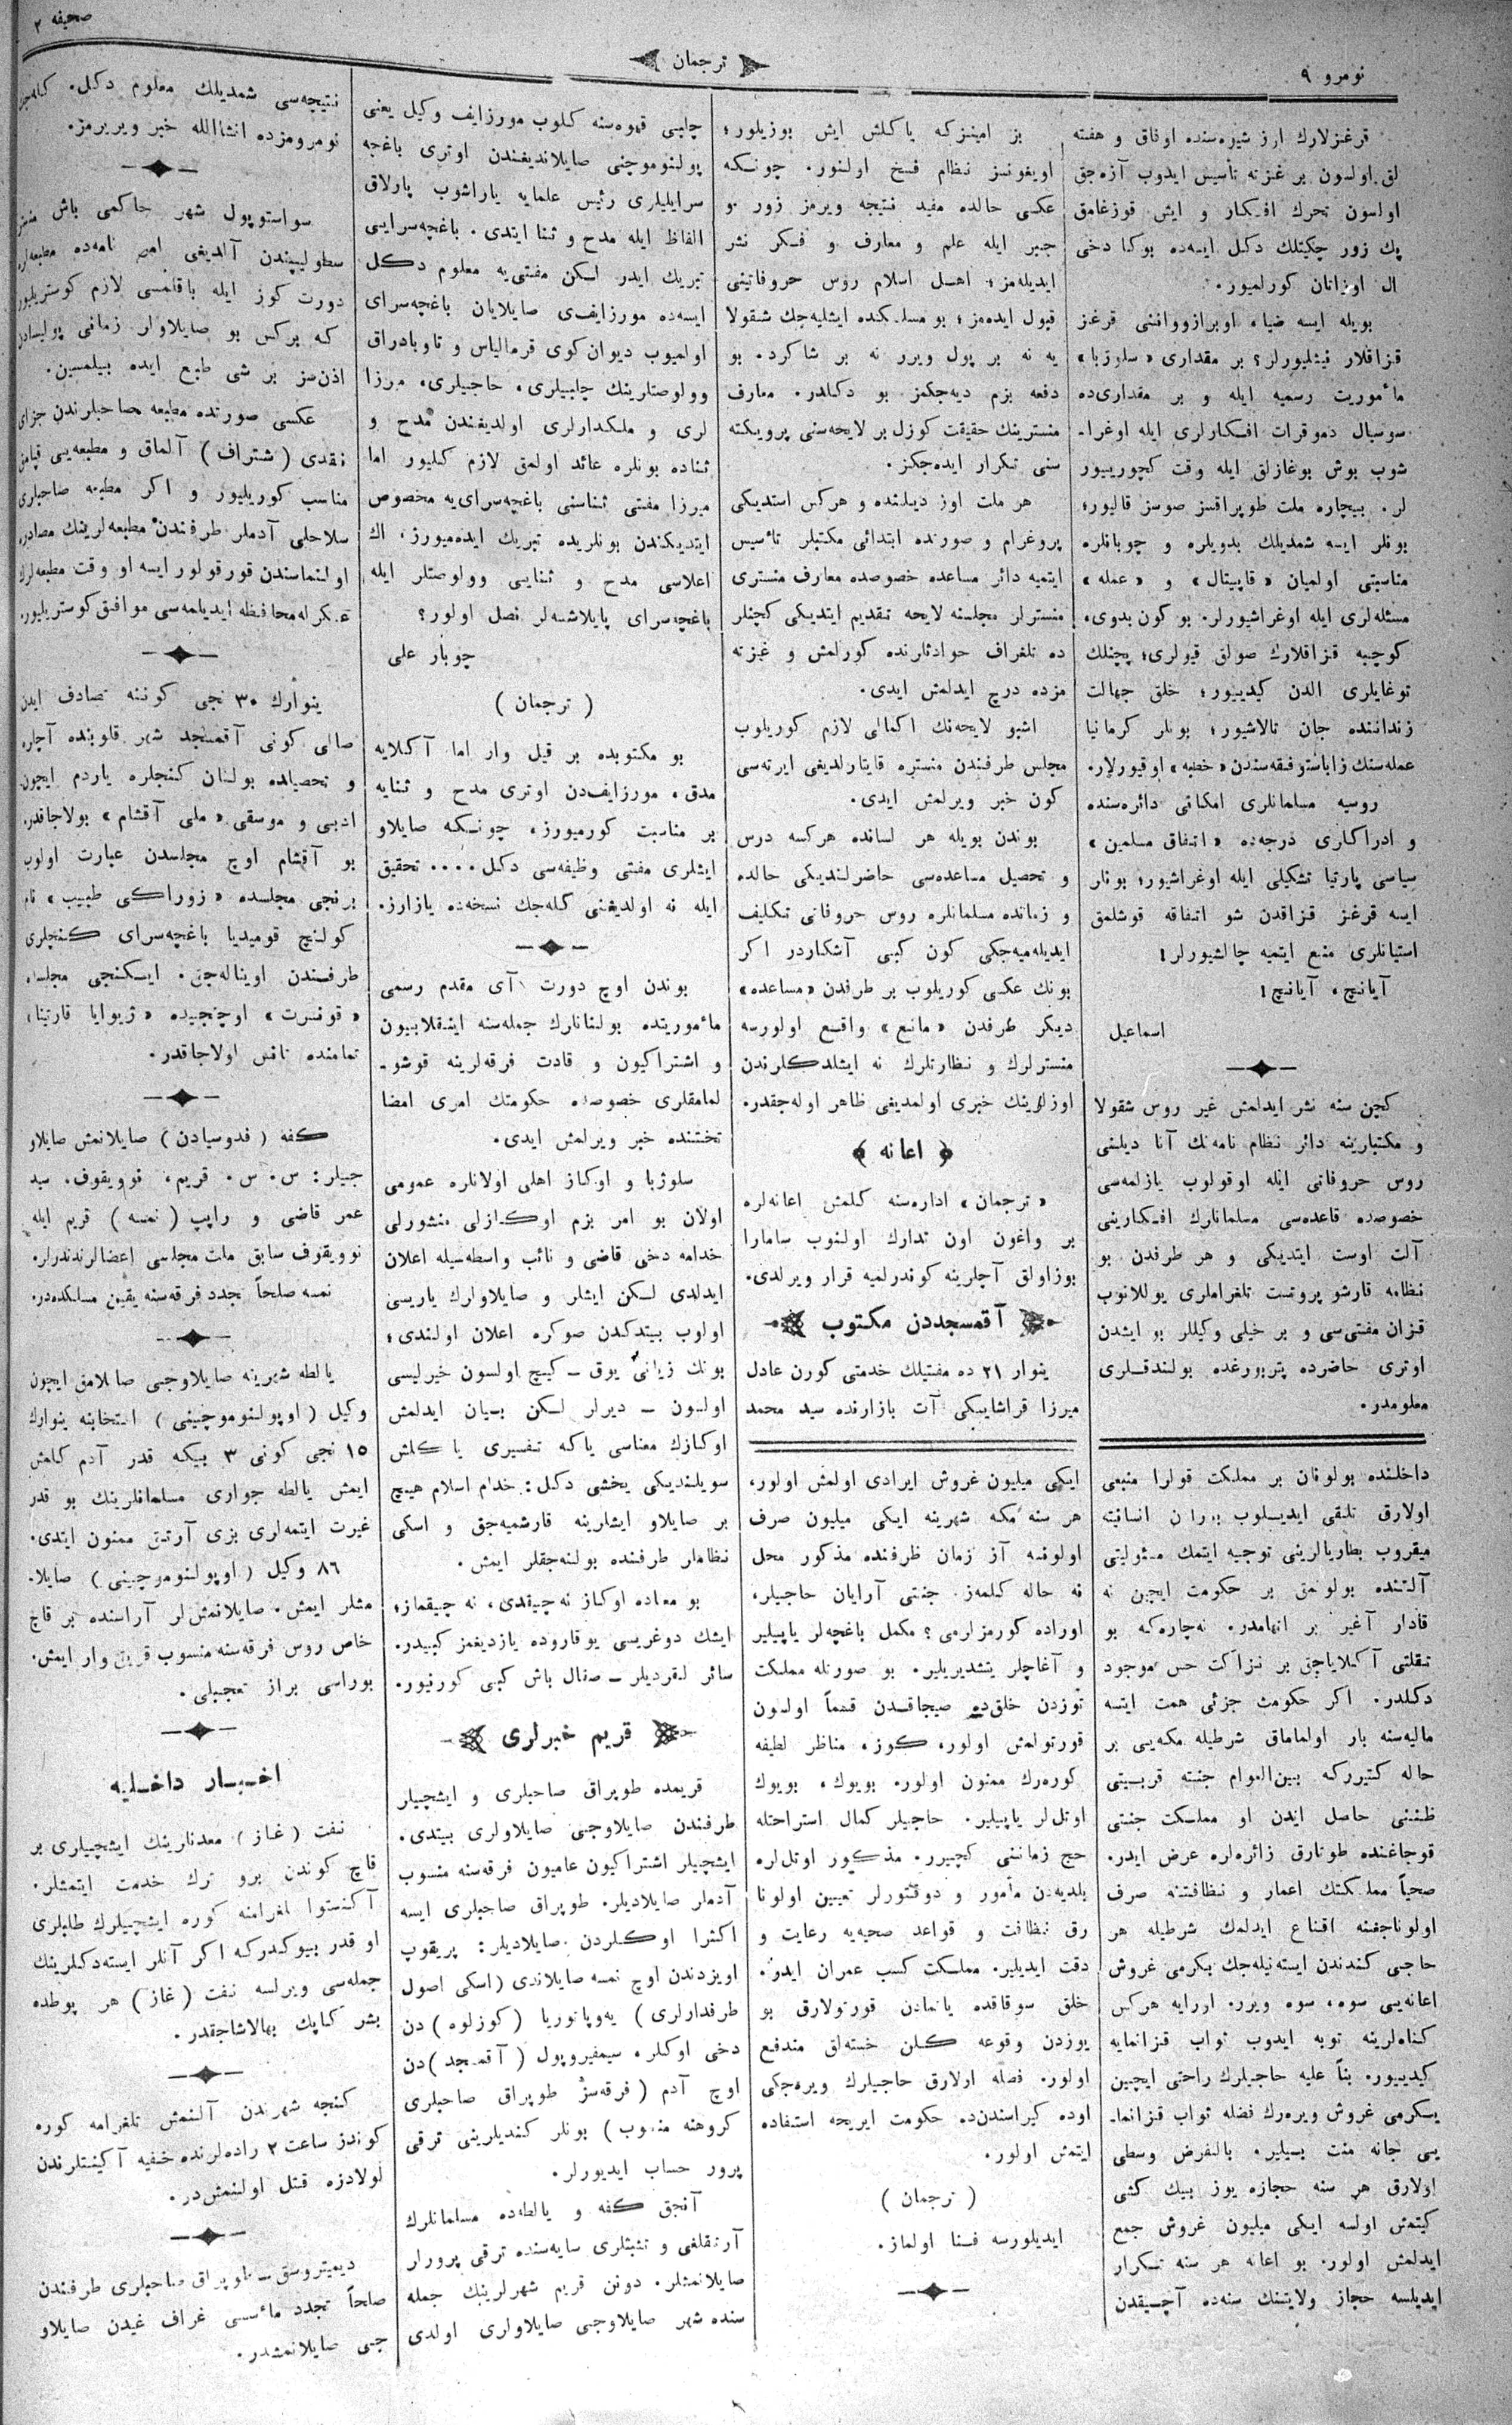 نومرو ۹
ترجمان
صحیفه ۲
قرغزلارك ارز شیره‌سنده اوفاق و هفته
لق اولسون بر غزته تأسیس ایدوب آزه‌جق
اولسون تحرك افكار و ایش قوزغامق
پك زور چكیتلك دكل ایسه‌ده بوكا دخی
ال اوزانان كورلمیور.
بویله ایسه ضیاء اوبرازووانئی قرغز
قزاقلار نیشلیورلر؟ بر مقداری «سلوژبا»
مأموریت رسمیه ایله و بر مقداری‌ده
سوسیال دموقرات افكارلری ایله اوغرا-
شوب بوش بوغازلق ایله وقت كچوریبور
لر. بیچاره ملت طوپراقسز صوسز قالیور؛
بونلر ایسه شمدیلك بدویلره و چوبانلره
مناسبتی اولمیان «قاپیتال» و «عمله»
مسئله‌لری ایله اوغراشیورلر. بو كون بدوی،
كوچبه قزاقلارك صولق قیولری؛ پچنلك
توغایلری الدن كیدییور؛ خلق جهالت
زنداننده جان تالاشیور؛ بونلر كرمانیا
عمله‌سنك زاباستوفقه‌سندن «خطبه» اوقیورلار.
روسیه مسلمانلری امكانی دائره‌سنده
و ادراكلری درجه‌ده «اتفاق مسلمین»
سیاسی پارتیا تشكیلی ایله اوغراشیور؛ بونلر
ایسه قرغز قزاقدن شو اتفاقه قوشلمق
استیانلری منع ایتمیه چالشیورلر!
آیانچ، آیانچ!
اسماعیل
كچن سنه نشر ایدلمش غیر روس شقولا
و مكتبلرینه دائر نظام نامه‌نك آنا دیلنی
روس حروفاتی ایله اوقولوب یازلمه‌سی
خصوصده قاعده‌سی مسلمانلرك افكارینی
آلت اوست ایتدیكی و هر طرفدن بو
نظامه قارشو پروتست تلغراملری یوللانوب
قزان مفتی‌سی و بر خیلی وكیللر بو ایشدن
اوتری حاضرده پتربورغده بولندقلری
معلومدر.
داخلنده بولونان بر مملكت قولرا منبعی
اولارق تلقی ایدیلوب بوران انسانیته
میقروب بطاریالرینی توجیه ایتمك مسئولیتی
آلتنده بولونمق بر حكومت ایچین نه
قادار آغیر بر اتهامدر. نه‌چاره‌كه بو
ثقلتی آكلایاجق بر نزاكت حس موجود
دكلدر. اكر حكومت جزئی همت ایتسه
مالیه‌سنه بار اولماماق شرطیله مكه‌یی بر
حاله كتیرركه بین‌العوام جنته قربیتی
ظننی حاصل ایدن او مملكت جنتی
قوجاغنده طوتارق زائره‌لره عرض ایدر.
صحیاً مملكتك اعمار و نظافتنه صرف
اولوناجغنه اقناع ایدلمك شرطیله هر
حاجی كندندن ایسته‌نیله‌جك یكرمی غروش
اعانه‌یی سوه، سوه ویرر. اررایه هركس
كناه‌لرینه توبه ایدوب ثواب قزانمایه
كیدییور. بنأ علیه حاجیلرك راحتی ایچین
یسكرمی غروش ویره‌رك فضله ثواب قزانما-
یی جانه منت بیلیر. بالفرض وسطی
اولارق هر سنه حجازه یوز بیك كشی
كیتمش اولسه ایكی میلیون غروش جمع
ایدلمش اولور. بو اعانه هر سنه تكرار
ایدیلسه حجاز ولایتنك سنه‌ده آچیقدن
بز امینزكه یاكلش ایش بوزیلور؛
اویغونسز نظام فسخ اولنور. چونكه
عكسی حالده مفید نتیجه ویرمز زور و
جبر ایله علم و معارف و فكر نشر
ایدیله‌مز؛ اهل اسلام روس حروفاتینی
قبول ایده‌مز؛ بو مسلكنده ایشلیه‌جك شقولا
یه نه بر پول ویرر نه بر شاكرد. بو
دفعه بزم دیه‌جكمز بو دكلدر. معارف
منسترینك حقیقت كوزل بر لایحه‌سنی پرویكته
سنی تكرار ایده‌جكز.
هر ملت اوز دیلنده و هركس استدیكی
پروغرام و صورنده ابتدائی مكتبلر تأسیس
ایتمیه دائر مساعده خصوصده معارف منستری
منسترلر مجلسنه لایحه تقدیم ایتدیكی كچنلر
ده تلغراف حوادثلرنده كورلمش و غزته
مزده درج ایدلمش ایدی.
اشبو لایحه‌نك اكمالی لازم كوریلوب
مجلس طرفندن منستره قایتارلدیغی ایرته‌سی
كون خبر ویرلمش ایدی.
بوندن بویله هر لسانده هركسه درس
و تحصیل مساعده‌سی حاضرلندیكی حالده
و زمانده مسلمانلره روس حروفاتی تكلیف
ایدیله‌میه‌جكی كون كبی آشكاردر اكر
بونك عكسی كوریلوب بر طرفدن «مساعده»
دیكر طرفدن «مانع» واقع اولورسه
منسترلرك و نظارتلرك نه ایشلدكلرندن
اوزلرینك خبری اولمدیغی ظاهر اوله‌جقدر.
﴿ اعانه ﴾
«ترجمان» اداره‌سنه كلمش اعانه‌لره
بر واغون اون تدارك اولنوب سامارا
بوزاولق آچلرینه كوندرلمیه قرار ویرلدی.
آقمسجددن مكتوب
ینوار ۲۱ ده مفتیلك خدمتی كورن عادل
میرزا قراشایسكی آت بازارنده سید محمد
ایكی میلیون غروش ایرادی اولمش اولور،
هر سنه مكه شهرینه ایكی میلیون صرف
اولونسه آز زمان ظرفنده مذكور محل
نه حاله كلمه‌ز. جنتی آرایان حاجیلر،
اوراده كورمزلرمی؟ مكمل باغچه‌لر یاپیلیر
و آغاچلر یتشدیریلیر. بو صورتله مملكت
توزدن خلق‌ده صیجاقدن قسماً اولسون
قورتولمش اولور، كوز، مناظر لطیفه
كوره‌رك ممنون اولور. بویوك، بویوك
اوتل‌لر یاپیلیر. حاجیلر كمال استراحتله
حج زماننی كچیرر. مذكور اوتل‌لره
بلدیه‌دن مأمور و دوقتورلر تعیین اولونا
رق نظافت و قواعد صحیه‌یه رعایت و
دقت ایدیلیر. مملكت كسب عمران ایدر.
خلق سوقاقده یاتمادن قورتولارق بو
یوزدن وقوعه كلن خسته‌لق مندفع
اولور. فضله اولارق حاجیلرك ویره‌جكی
اوده كیراسندن‌ده حكومت ایریجه استفاده
ایتمش اولور.
(ترجمان)
ایدیلورسه فنا اولماز.
چلبی قهوه‌سنه كلوب مورزایف وكیل یعنی
پولنوموچنی صایلاندیغندن اوتری باغچه
سرایلیلری رئیس علمایه یاراشوب پارلاق
الفاظ ایله مدح و ثنا ایتدی. باغچه‌سرایی
تبریك ایدر لكن مفتی‌یه معلوم دكل
ایسه‌ده مورزایف‌ی صایلایان باغچه‌سرای
اولمیوب دیوان‌كوی قرمالیاس و تاوبادراق
وولوصتلرینك چلبیلری، حاجیلری، مرزا
لری و ملكدارلری اولدیغندن مدح و
ثناده بونلره عائد اولمق لازم كلیور اما
میرزا مفتی ثناسنی باغچه‌سرای‌یه مخصوص
ایتدیكندن بونلریده تبریك ایده‌میورز، اك
اعلاسی مدح و ثنایی وولوصتلر ایله
باغچه‌سرای پایلاشسه‌لر نصل اولور؟
چوبار علی
(ترجمان)
بو مكتوبده بر قیل وار اما آكلایه
مدق، مورزایف‌دن اوتری مدح و ثنایه
بر مناسبت كورمیورز، چونكه صایلاو
ایشلری مفتی وظیفه‌سی دكل.... تحقیق
ایله نه اولدیغنی كله‌جك نسخه‌ده یازارز.
بوندن اوچ دورت آی مقدم رسمی
مأموریتده بولنانلرك جمله‌سنه اینقلابیون
و اشتراكیون و قادت فرقه‌لرینه قوشو-
لمامقلری خصوصده حكومتك امری امضا
تختنده خبر ویرلمش ایدی.
سلوژبا و اوكاز اهلی اولانلره عمومی
اولان بو امر بزم اوكازلی منشورلی
خدامه دخی قاضی و نائب واسطه‌سیله اعلان
ایدلدی لكن ایشلر و صایلاولرك یاریسی
اولوب بیتدكدن صوكره اعلان اولندی؛
بونك زیانی یوق – كیچ اولسون خیرلیسی
اولسون – دیرلر لكن بیان ایدلمش
اوكازك معناسی یاكه تفسیری یاكلش
سویلندیكی یخشی دكل: خدام اسلام هیچ
بر صایلاو ایشلرینه قارشمیه‌جق و اسكی
نظاملر طرفنده بولنه‌جقلر ایمش.
بو معاده اوكاز نه چیقدی، نه چیقماز؛
ایشك دوغریسی یوقاروده یازدیغمز كبیدر.
سائر لقردیلر – صنال باش كبی كورنیور.
قریم خبرلری
قریمده طوپراق صاحبلری و ایشچیلر
طرفندن صایلاوجی صایلاولری بیتدی.
ایشچیلر اشتراكیون عامیون فرقه‌سنه منسوب
آدملر صایلادیلر. طوپراق صاحبلری ایسه
اكثرا اوكلردن صایلادیلر: پریقوپ
اویزدندن اوچ نمسه صایلاندی (اسكی اصول
طرفدارلری) یه‌وپاتوریا (كوزلوه) دن
دخی اوكلر، سیمفیروپول (آقمسجد) دن
اوچ آدم (فرقه‌سز طوپراق صاحبلری
كروهنه منسوب) بونلر كندیلرینی ترقی
پرور حساب ایدیورلر.
آنجق كفه و یالطه‌ده مسلمانلرك
آرتقلغی و تثبثلری سایه‌سنده ترقی پرورلر
صایلانمشلر. دونن قریم شهرلرینك جمله
سنده شهر صایلاوجی صایلاولری اولدی
نتیجه‌سی شمدیلك معلوم دكل. كله‌جك
نومرومزده انشاالله خبر ویریرمز.
سواستوپول شهر حاكمی باش منستر
ستولیپندن آلدیغی امر نامه‌ده مطبعه‌لره
دورت كوز ایله باقلمسی لازم كوستریلیور
كه بركس بو صایلاولر زمانی پولیسادن
اذن‌سز بر شی طبع ایده بیلمسین.
عكسی صورنده مطبعه صاحبلرندن جزای
نقدی (شتراف) آلماق و مطبعه‌یی قپامق
مناسب كوریلیور و اكر مطبعه صاحبلری
سلاحلی آدملر طرفندن مطبعه‌لرینك مصادره
اولنماسندن قورقولور ایسه او وقت مطبعه‌لرك
عسكرله محافظه ایدیلمه‌سی موافق كوستریلیور.
ینوارك ۳۰ نجی كوننه تصادف ایدن
صالی كونی آقمسجد شهر قلوبنده آچلره
و تحصیلده بولنان كنجلره یاردم ایچون
ادبی و موسقی «ملی آقشام» بولاجاقدر.
بو آقشام اوچ مجلسدن عبارت اولوب
برنجی مجلسده «زوراكی طبیب» نام
كولنچ قومیدیا باغچه‌سرای كنجلری
طرفندن اوینالەجق. ایكنجی مجلسده
«قونسرت» اوچنجیده «ژیوایا قارتینا»
تمامنده تانس اولاجاقدر.
كفه (فدوسیادن) صایلانمش صایلاو
جیلر: س. س. قریم، نوویقوف، سید
عمر قاضی و راپپ (نمسه) قریم ایله
نوویقوف سابق ملت مجلسی اعضالرندندرلر.
نمسه صلحاً تجدد فرقه‌سنه یقین مسلكده‌در.
یالطه شهرینه صایلاوجی صایلامق ایچون
وكیل (اوپولنوموچینی) انتخابنه ینوارك
۱۵ نجی كونی ۳ بیكه قدر آدم كلمش
ایمش یالطه جواری مسلمانلرینك بو قدر
غیرت ایتمه‌لری بزی آرتق ممنون ایتدی.
۸۶ وكیل (اوپولنوموچینی) صایلا-
مشلر ایمش. صایلانمش‌لر آراسنده بر قاچ
خاص روس فرقه‌سنه منسوب قریق وار ایمش.
بوراسی براز تعجبلی.
اخبار داخلیه
نفت (غاز) معدنلرینك ایشچیلری بر
قاچ كوندن برو ترك خدمت ایتمشلر.
آكنستوا تلغرامنه كوره ایشچیلرك طلبلری
او قدر بیوكدركه اكر آنلر ایسته‌دكلرینك
جمله‌سی ویرلسه نفت (غاز) هر پوطده
بشر كپك بهالاشاجقدر.
كنجه شهرندن آلنمش تلغرامه كوره
كوندز ساعت ۲ راده‌لرنده خفیه آكینتلرندن
لولادزه قتل اولنمش‌در.
دیمیتروسق – طوپراق صاحبلری طرفندن
صلحاً تجدد مأسسی غراف غیدن صایلاو
جی صایلانمشدر.